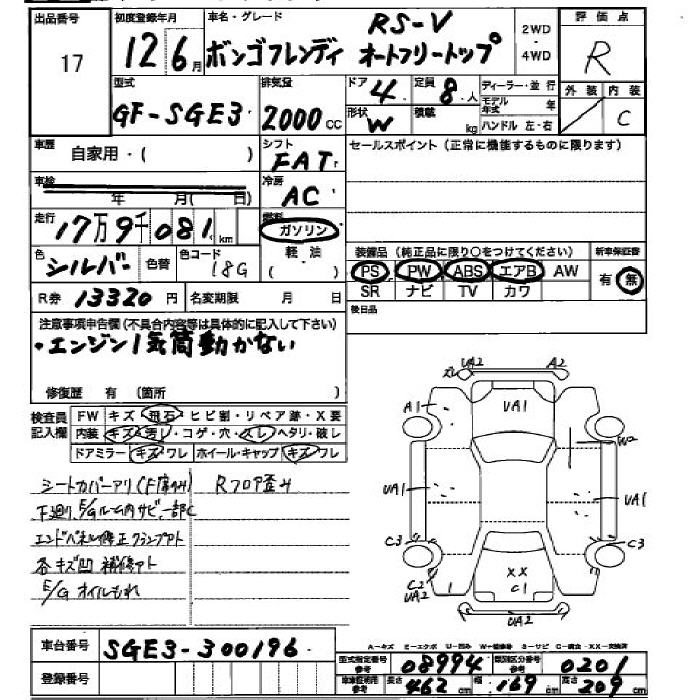 出品番号 17
初度登録年月 12 6月
車名・グレード RS-V
ボンゴフレンディ オートフリートップ
2WD ・ 4WD
評価点 R
外装 内装 C
型式 GF-SGE3
排気量 2000 cc
ドア 4 定員 8人
形状 W 積載 kg
ディーラー・並行
モデル年式 年
ハンドル 左・右
車歴 自家用・( )
シフト FAT
セールスポイント(正常に機能するものに限ります)
車検 年 月(日)
冷房 AC
走行 17万9千081 km
燃料 ガソリン
軽油
( )
色 シルバー 色替 色コード 18G
装備品(純正品に限り○をつけてください) 新車保証書
PS PW ABS エアB AW 有・無
SR ナビ TV カワ
R券 13320円 名変期限 月 日
後日品
注意事項申告欄(不具合内容等は具体的に記入して下さい)
・エンジン1気筒動かない
修復歴 有 (箇所 )
検査員記入欄
FW キズ・飛石・ヒビ割・リペア跡・X要
内装 キズ・汚レ・コゲ・穴・スレ・ヘタリ・破レ
ドアミラー キズ・ワレ ホイール・キャップ キズ・ワレ
シートカバーアリ(F席のみ) Rフロア歪み
下廻り、E/Gルーム内サビ、一部C
エンドパネル修正クランプアト
各キズ凹 補修アト
E/G オイルもれ
UA2 A2
A1 UA1 W2
UA1 UA1
C3 C3
C2 UA2 1 XX C1
UA2
車台番号 SGE3-300196
登録番号
A-キズ E-エクボ U-凹み W-補修跡 S-サビ C-腐食 ・XX-交換済
型式指定番号 参考 08994 類別区分番号 参考 0201
車庫証明用 参考 長さ 462 cm 幅 169 cm 高さ 209 cm